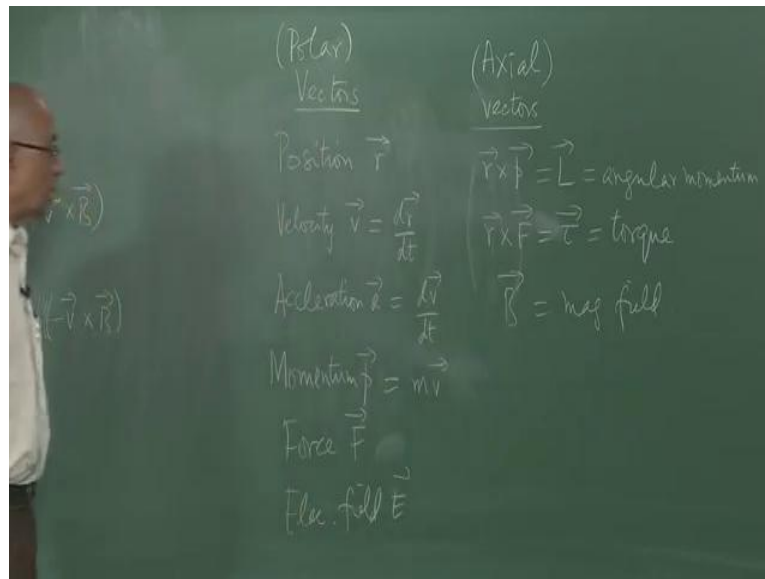 (Polar)
Vectors
Position r⃗
Velocity v⃗ = dr⃗/dt
Accleration a⃗ = dv⃗/dt
Momentum p⃗ = mv⃗
Force F⃗
Elec. field E⃗
(Axial)
Vectors
r⃗ × p⃗ = L⃗ = angular momentum
r⃗ × F⃗ = τ⃗ = torque
B⃗ = mag field
× B⃗)
(-v⃗ × B⃗)